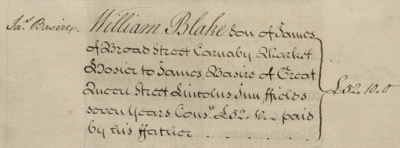 Jas. Basire. William Blake son of James
of Broad Street Carnaby Market
Hosier to James Basire of Great
Queen Street Lincolns Inn ffields
seven Years Cons.n £52. 10.. paid
by his ffather
£52. 10. 0